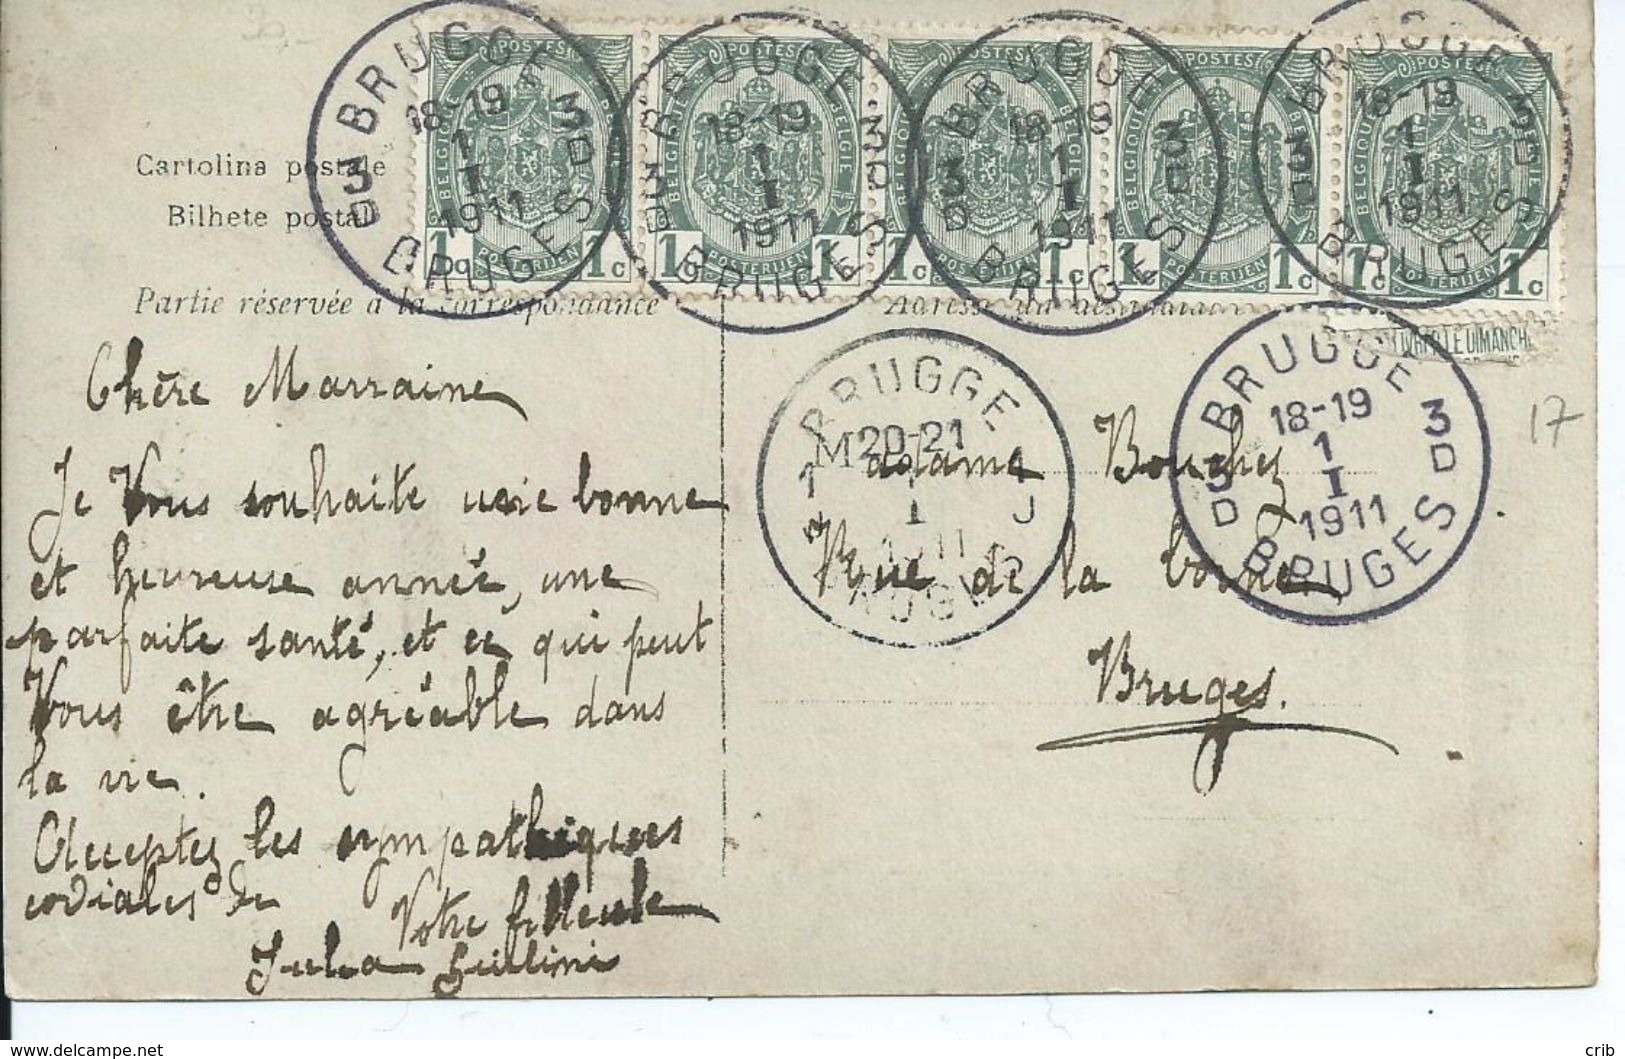 BRUGGE 18-19 1 I 1911 3D BRUGES
BRUGGE 18-19 1 I 1911 3D BRUGES
BRUGGE 18-19 1 I 1911 3D BRUGES
BRUGGE 18-19 1 I 1911 3D BRUGES
POSTES BELGIQUE BELGIË POSTERIJEN 1c 1c
POSTES BELGIQUE BELGIË POSTERIJEN 1c 1c
POSTES BELGIQUE BELGIË POSTERIJEN 1c 1c
POSTES BELGIQUE BELGIË POSTERIJEN 1c 1c
POSTES BELGIQUE BELGIË POSTERIJEN 1c 1c
Cartolina postale
Bilhete postal
Partie réservée à la correspondance
Adresse du destinataire
LE DIMANCHE
17
Chère Marraine
Je Vous souhaite une bonne
et heureuse année, une
parfaite santé, et ce qui peut
Vous être agréable dans
la vie.
Acceptez les sympathiques
cordiales de
Votre filleule
Julia
BRUGGE 20-21 1 I 1911 1J
BRUGGE 18-19 1 I 1911 3D BRUGES
Madame Bouchez
Rue de la
Bruges.
www.delcampe.net
crib